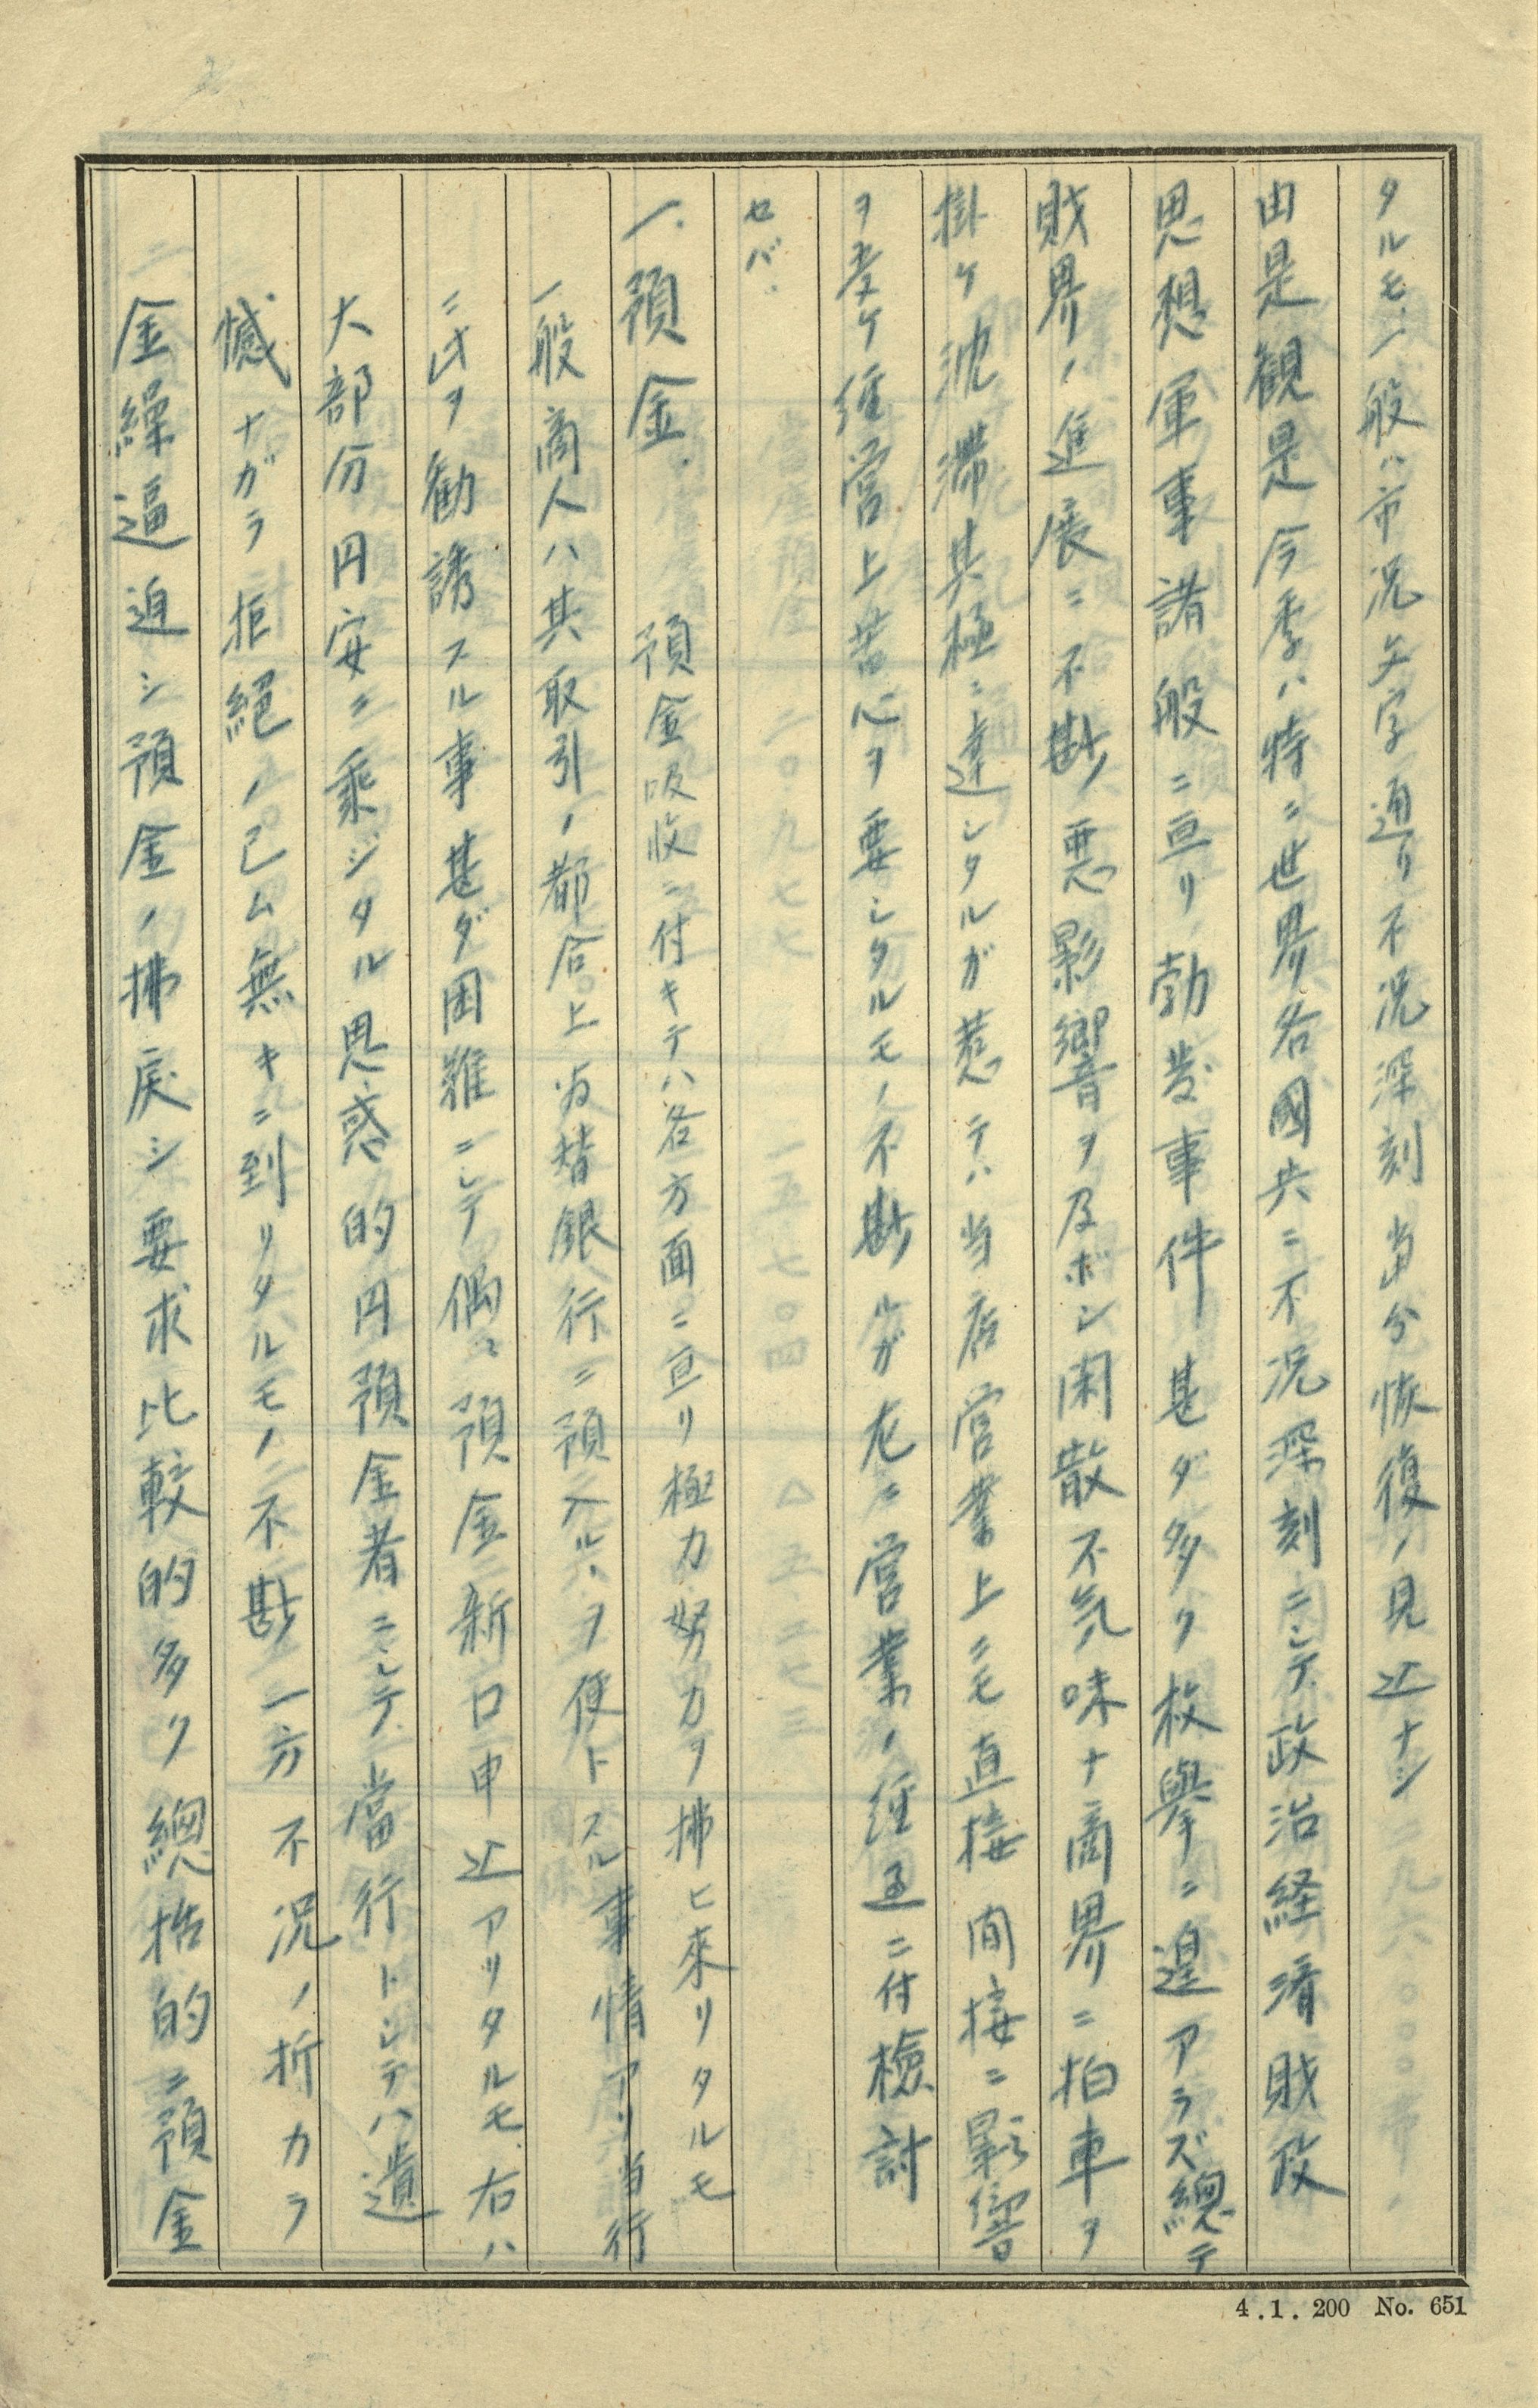 タルモノ一般ハ市况文字通リ不况深刻当分恢復ノ見込ナシ
由是観是今季ハ特ニ世界各國共ニ不况深刻ニシテ政治経済財政
思想軍事諸般ニ亘リ勃発事件甚ダ多ク枚擧ニ遑アラズ總テ
財界ノ進展ニ不尠悪影響ヲ及ボシ閑散不気味ナ商界ニ拍車ヲ
掛ケ沈滞其極ニ達シタルガ惹テハ当店営業上ニモ直接間接ニ影響
ヲ受ケ経営上苦心ヲ要シタルモノ不尠ルガ左ニ営業ノ経過ニ付檢討
セバ、
一、預金、　預金吸收ニ付キテハ各方面ニ亘リ極力努力ヲ拂ヒ來リタルモ
一般商人ハ其取引ノ都合上為替銀行ニ預入ルヽヲ便トスル事情アリ当行
ニ此ヲ勧誘スル事甚ダ困難ニシテ偶々預金新口申込アリタルモ、右ハ
大部分円安ニ乘ジタル思惑的円預金者ニシテ、當行トシテハ遺
憾ナガラ拒絕ノ已ム無キニ到リタルモノ不尠一方不况ノ折カラ
金繰逼迫シ預金ノ拂戻シ要求比較的多ク總括的ニ預金
4.1.200 No. 651